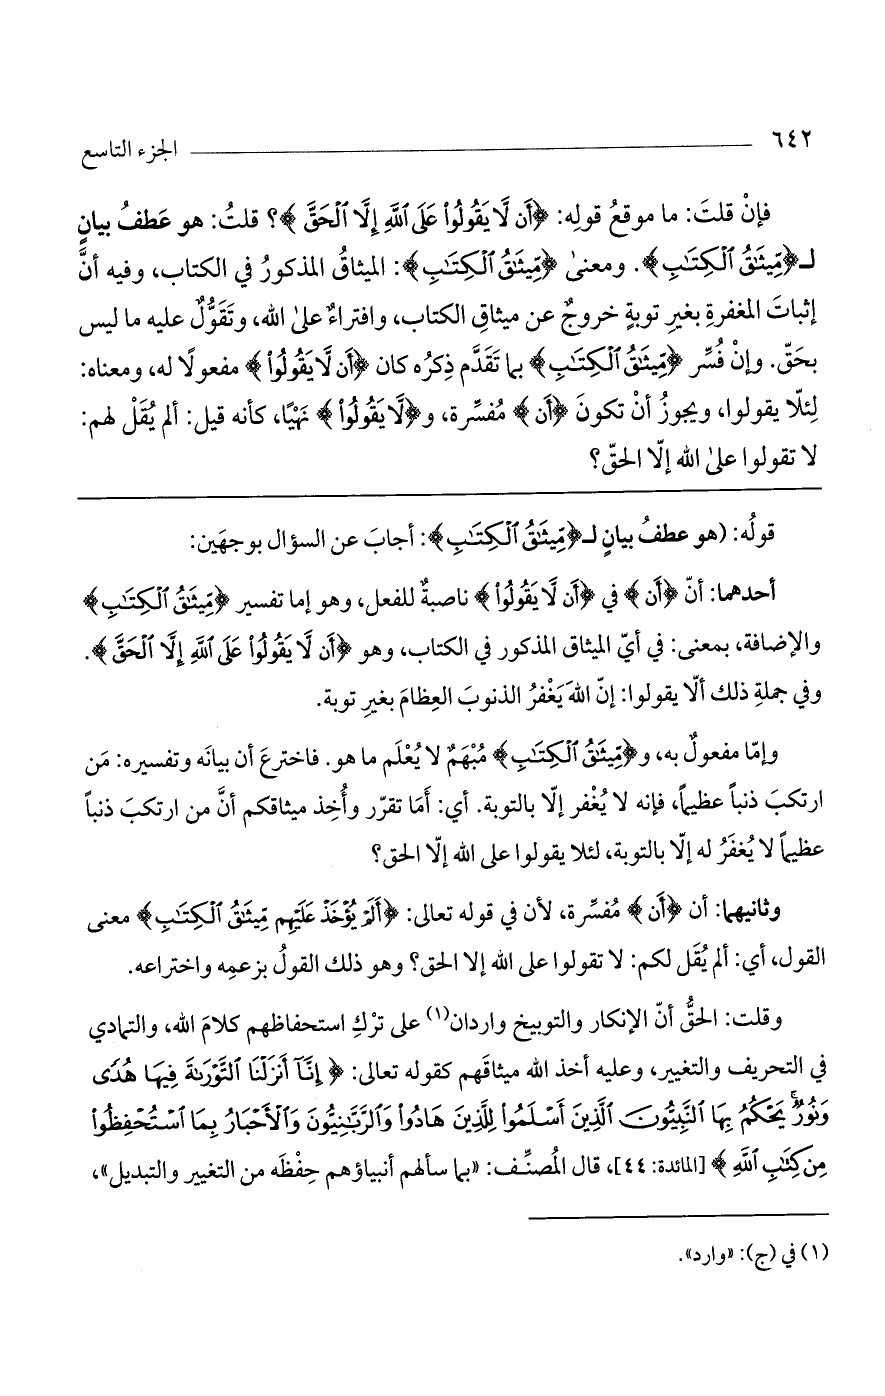 ٦٤٢ الجزء التاسع
فإنْ قلتَ: ما موقعُ قولِه: ﴿أَن لَّا يَقُولُوا۟ عَلَى ٱللَّهِ إِلَّا ٱلْحَقَّ﴾؟ قلتُ: هو عَطفُ بيانٍ
لـ﴿مِّيثَٰقُ ٱلْكِتَٰبِ﴾. ومعنىٰ ﴿مِّيثَٰقُ ٱلْكِتَٰبِ﴾: الميثاقُ المذكورُ في الكتاب، وفيه أنَّ
إثباتَ المغفرةِ بغيرِ توبةٍ خروجٌ عن ميثاقِ الكتاب، وافتراءٌ علىٰ الله، وتَقَوُّلٌ عليه ما ليس
بحَقّ. وإنْ فُسِّر ﴿مِّيثَٰقُ ٱلْكِتَٰبِ﴾ بما تَقَدَّم ذِكرُه كان ﴿أَن لَّا يَقُولُوا۟﴾ مفعولًا له، ومعناه:
لِئلّا يقولوا، ويجوزُ أنْ تكونَ ﴿أَن﴾ مُفسِّرة، و﴿لَّا يَقُولُوا۟﴾ نَهْيًا، كأنه قيل: ألم يُقَلْ لهم:
لا تقولوا علىٰ الله إلّا الحقّ؟
قولُه: (هو عطفُ بيانٍ لـ﴿مِّيثَٰقُ ٱلْكِتَٰبِ﴾: أجابَ عن السؤال بوجهَين:
أحدهما: أنّ ﴿أَن﴾ في ﴿أَن لَّا يَقُولُوا۟﴾ ناصبةٌ للفعل، وهو إما تفسير ﴿مِّيثَٰقُ ٱلْكِتَٰبِ﴾
والإضافة، بمعنى: في أيّ الميثاق المذكور في الكتاب، وهو ﴿أَن لَّا يَقُولُوا۟ عَلَى ٱللَّهِ إِلَّا ٱلْحَقَّ﴾.
وفي جملةِ ذلك ألّا يقولوا: إنّ اللهَ يَغْفرُ الذنوبَ العِظامَ بغيرِ توبة.
وإمّا مفعولٌ به، و﴿مِّيثَٰقُ ٱلْكِتَٰبِ﴾ مُبْهَمٌ لا يُعْلَم ما هو. فاخترعَ أن بيانَه وتفسيره: مَن
ارتكبَ ذنباً عظيماً، فإنه لا يُغْفر إلّا بالتوبة. أي: أمَا تقرّر وأُخِذ ميثاقكم أنَّ من ارتكبَ ذنباً
عظيماً لا يُغفَرُ له إلّا بالتوبة، لئلا يقولوا على الله إلّا الحق؟
وثانيهما: أن ﴿أَن﴾ مُفسِّرة، لأن في قوله تعالى: ﴿أَلَمْ يُؤْخَذْ عَلَيْهِم مِّيثَٰقُ ٱلْكِتَٰبِ﴾ معنى
القول، أي: ألم يُقَل لكم: لا تقولوا على الله إلا الحق؟ وهو ذلك القولُ بزعمِه واختراعه.
وقلت: الحقُّ أنّ الإنكار والتوبيخ واردان(١) على ترْكِ استحفاظهم كلامَ الله، والتمادي
في التحريف والتغيير، وعليه أخذ الله ميثاقَهم كقوله تعالى: ﴿إِنَّآ أَنزَلْنَا ٱلتَّوْرَىٰةَ فِيهَا هُدًى
وَنُورٌ ۚ يَحْكُمُ بِهَا ٱلنَّبِيُّونَ ٱلَّذِينَ أَسْلَمُوا۟ لِلَّذِينَ هَادُوا۟ وَٱلرَّبَّٰنِيُّونَ وَٱلْأَحْبَارُ بِمَا ٱسْتُحْفِظُوا۟
مِن كِتَٰبِ ٱللَّهِ﴾ [المائدة: ٤٤]، قال المُصنِّف: «بما سألهم أنبياؤهم حِفْظَه من التغيير والتبديل»،
(١) في (ج): «وارد».